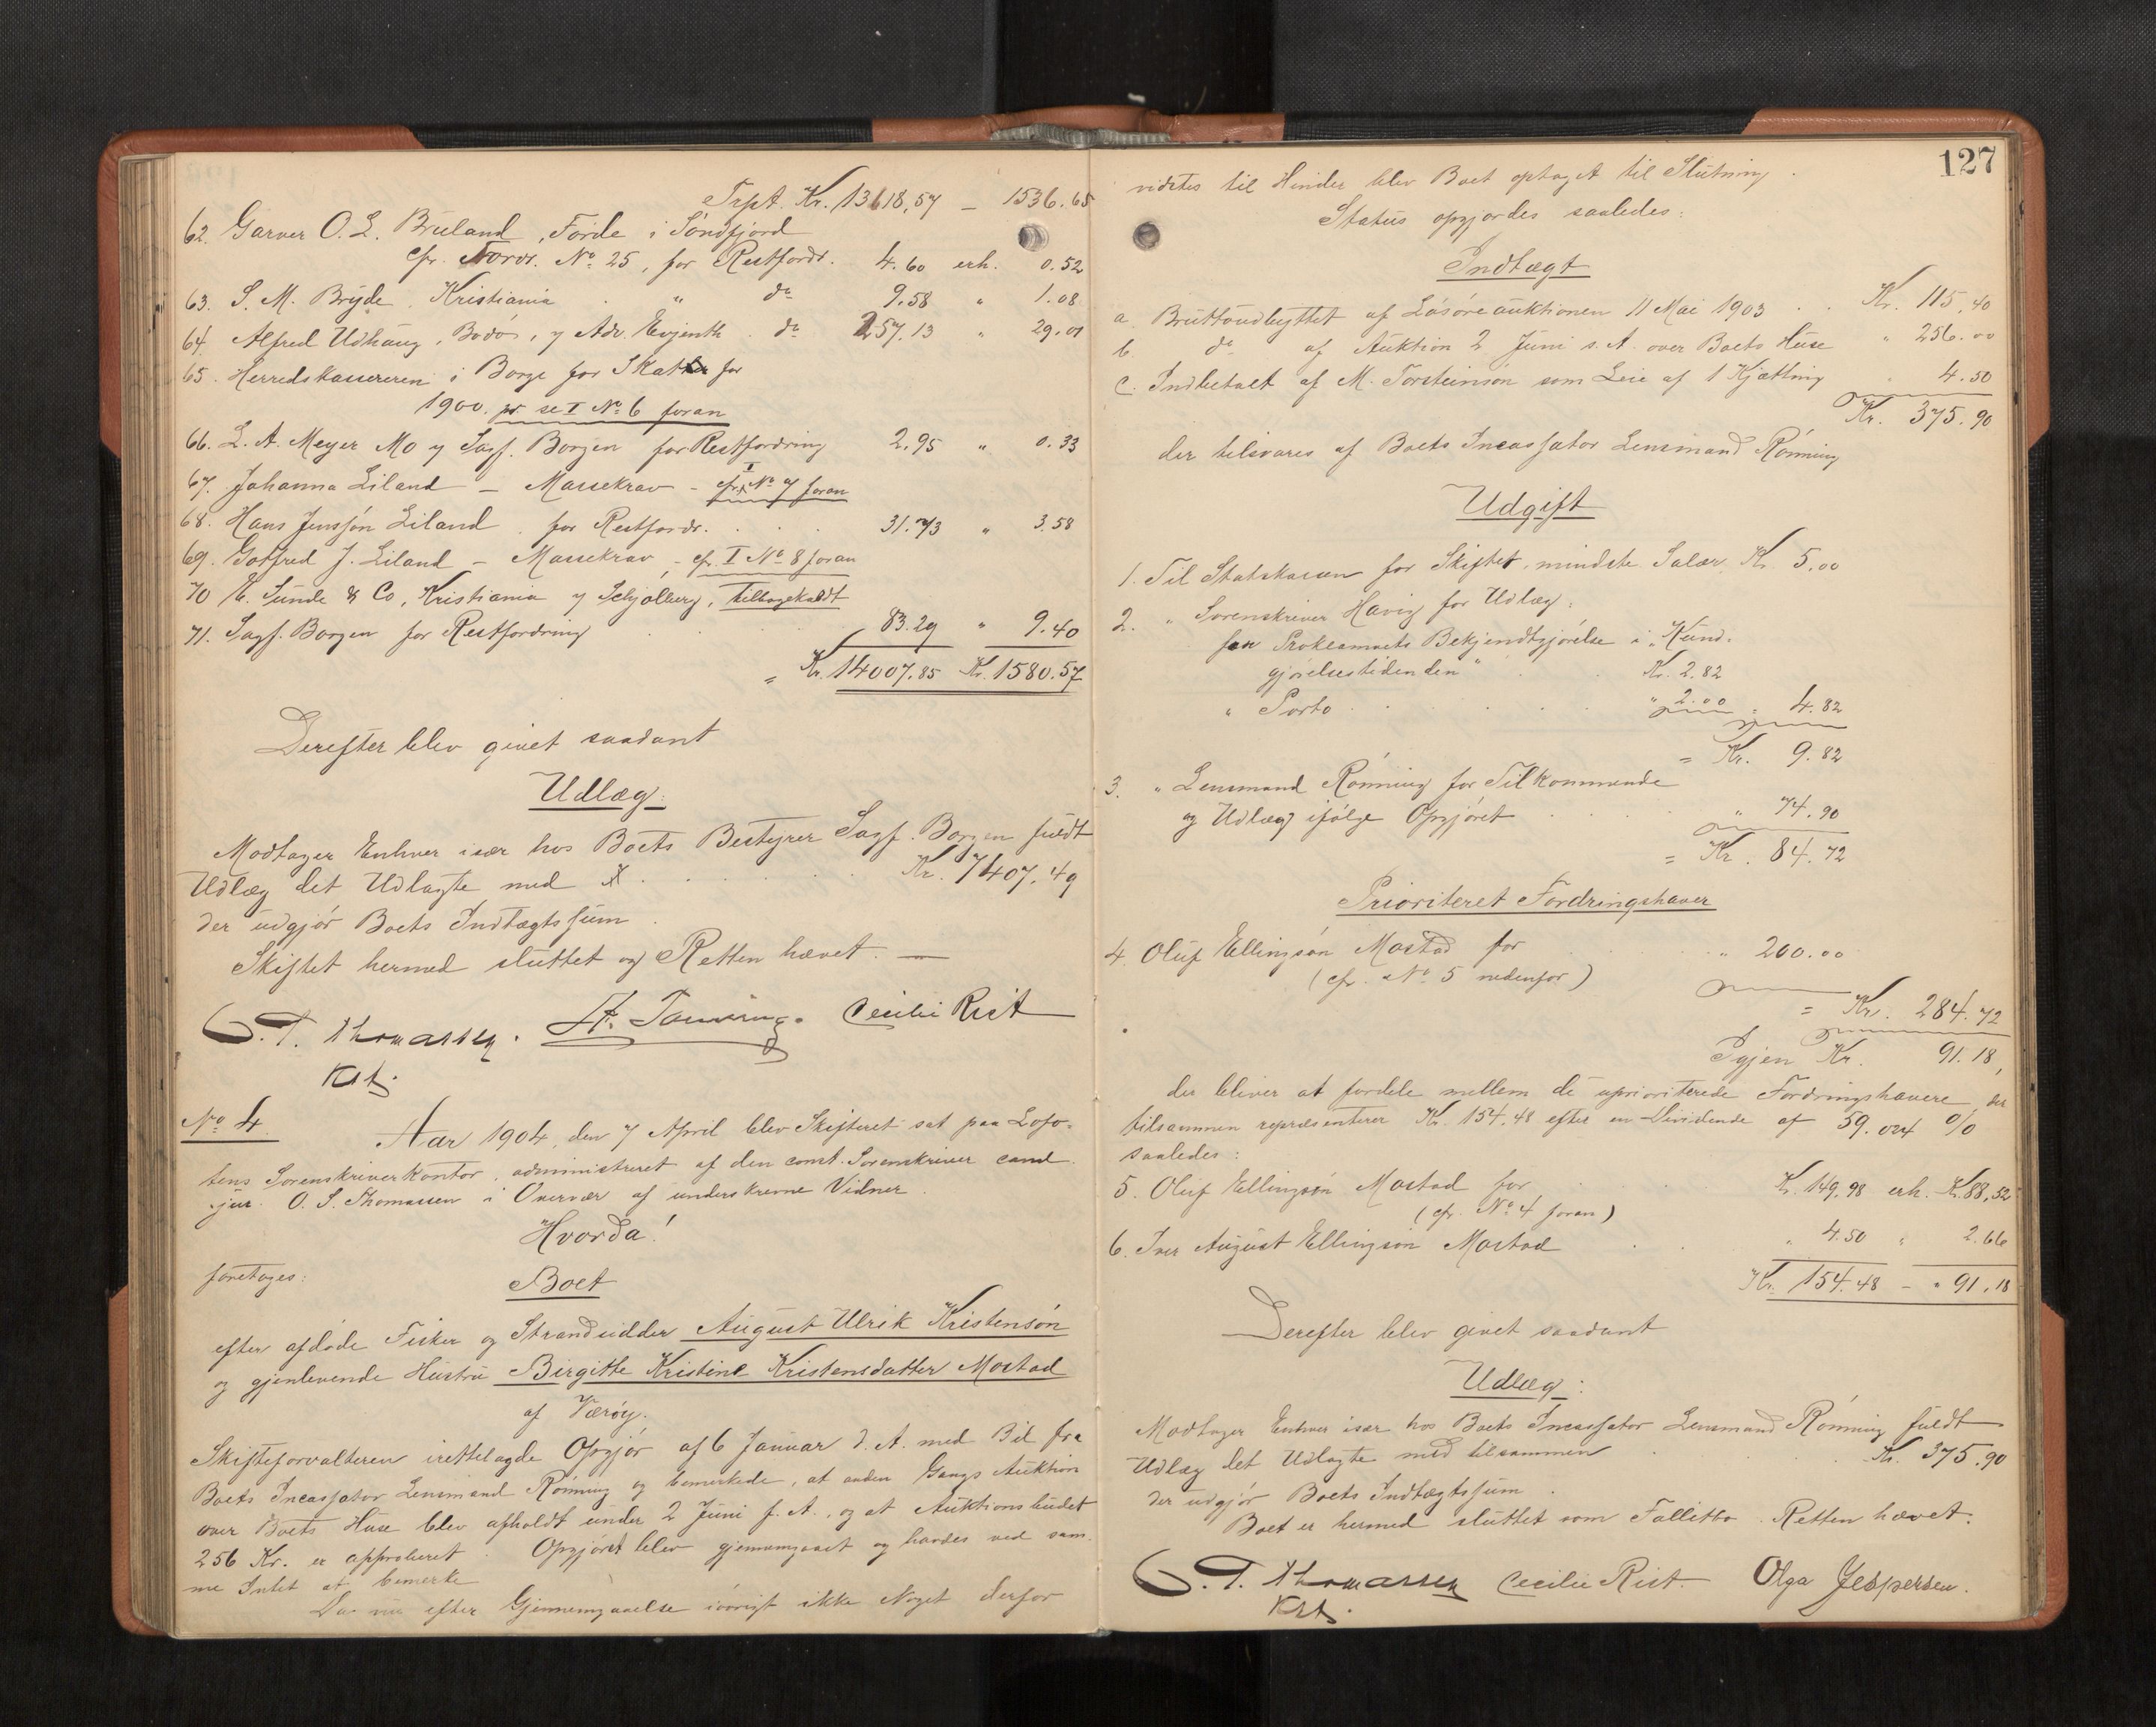 Trspt. Kr. 13618,57 — 1536.65
62. Garver O. L. Bruland, Förde i Söndfjord
cfr. Fordr. No. 25, for Restfordr. 4.60 erh. 0.52
63. S. M. Bryde, Kristiania " do 9.58 " 1.08
64. Alfred Udhaug, Bodö, v Adv. Evjenth. do 257.13 " 29.01
65. Herredskassereren i Borge for Skatter for
1900. se I No. 6 foran
66. L. A. Meyer Mo v Sagf. Borgen for Restfordring 2.95 " 0.33
67. Johanna Liland — Massekrav — cfr. I No 7 foran
68. Hans Jenssön Liland for Restfordr. 31.73 " 3.58
69. Gotfred J. Liland — Massekrav — cfr. I No 8 foran
70 E. Sunde & Co, Kristiania v Schjölberg, tilbagekaldt
71. Sagf. Borgen for Restfordring 83.29 " 9.40
= Kr. 14007.85 Kr. 1580.57
Derefter blev givet saadant
Udlæg:
Modtager Enhver især hos Boets Bestyrer Sagf. Borgen fuldt
Udlæg det Udlagte med Kr. 7407.49
der udgjör Boets Indtægtssum
Skiftet hermed sluttet og Retten hævet. —
O. T. Thomassen. Cecilie Rist
Kst.
No 4.
Aar 1904, den 7 April blev Skifteret sat paa Lofo-
tens Sorenskriverkontor, administreret af den const. Sorenskriver cand.
jur. O. S. Thomassen i Overvær af underskrevne Vidner
Hvorda!
foretages:
Boet
efter afdöde Fisker og Strandsidder August Ulrik Kristensön
og gjenlevende Hustru Birgitte Kristine Kristensdatter Mostad
af Væröy.
Skifteforvalteren irettelagde Opgjör af 6 Januar d. A. med Bil. fra
Boets Incassator Lensmand Rönning og bemerkede, at anden Gangs Auktion
over Boets Huse blev afholdt under 2 Juni f. A., og at Auktionsbudet
256 Kr. er approberet. Opgjöret blev gjennemgaaet og havdes ved sam-
me Intet at bemerke
Da nu efter Gjennemgaaelse iövrigt ikke Noget derfor
127
vidstes til Hinder blev Boet optaget til Slutning.
Status opgjordes saaledes:
Indtægt
a. Bruttoudbyttet af Lösöreauktionen 11 Mai 1903 . . Kr. 115,40
b. do af Auktion 2 Juni s. A. over Boets Huse " 256.00
c. Indbetalt af M. Torsteinsön som Leie af 1 Kjætting " 4.50
Kr. 375.90
der tilsvares af Boets Incassator Lensmand Rönning
Udgift
1. Til Statskassen for Skiftet, mindste Salær Kr. 5.00
2. " Sorenskriver Havig for Udlæg:
for Proklamaets Bekjendtgjörelse i "Kund-
gjörelsestidenden" Kr. 2.82
" Porto . . . . " 2.00 = 4.82
= Kr. 9.82
3. " Lensmand Rönning for Tilkommende
og Udlæg ifölge Opgjöret . . . . " 74.90
= Kr. 84.72
Prioriteret Fordringshaver
4. Oluf Ellingsön Mostad for . . " 200.00
(cfr. No. 5 nedenfor)
= Kr. 284.72
Igjen Kr. 91.18,
der bliver at fordele mellem de uprioriterede Fordringshavere, der
tilsammen repræsenterer Kr. 154.48 efter en Dividende af 59.024 %
saaledes:
5. Oluf Ellingsön Mostad for . . Kr. 149.98 erh. Kr. 88,52
(cfr. No 4 foran)
6. Iver August Ellingsön Mostad . . " 4.50 " 2.66
Kr. 154.48 — " 91.18
Derefter blev givet saadant
Udlæg:
Modtager Enhver især hos Boets Incassator Lensmand Rönning fuldt
Udlæg det Udlagte med tilsammen . . . Kr. 375.90
der udgjör Boets Indtægtssum.
Boet er hermed sluttet som Fallitbo. Retten hævet.
O. T. Thomassen Cecilie Rist. Olga Jespersen.
Kst.